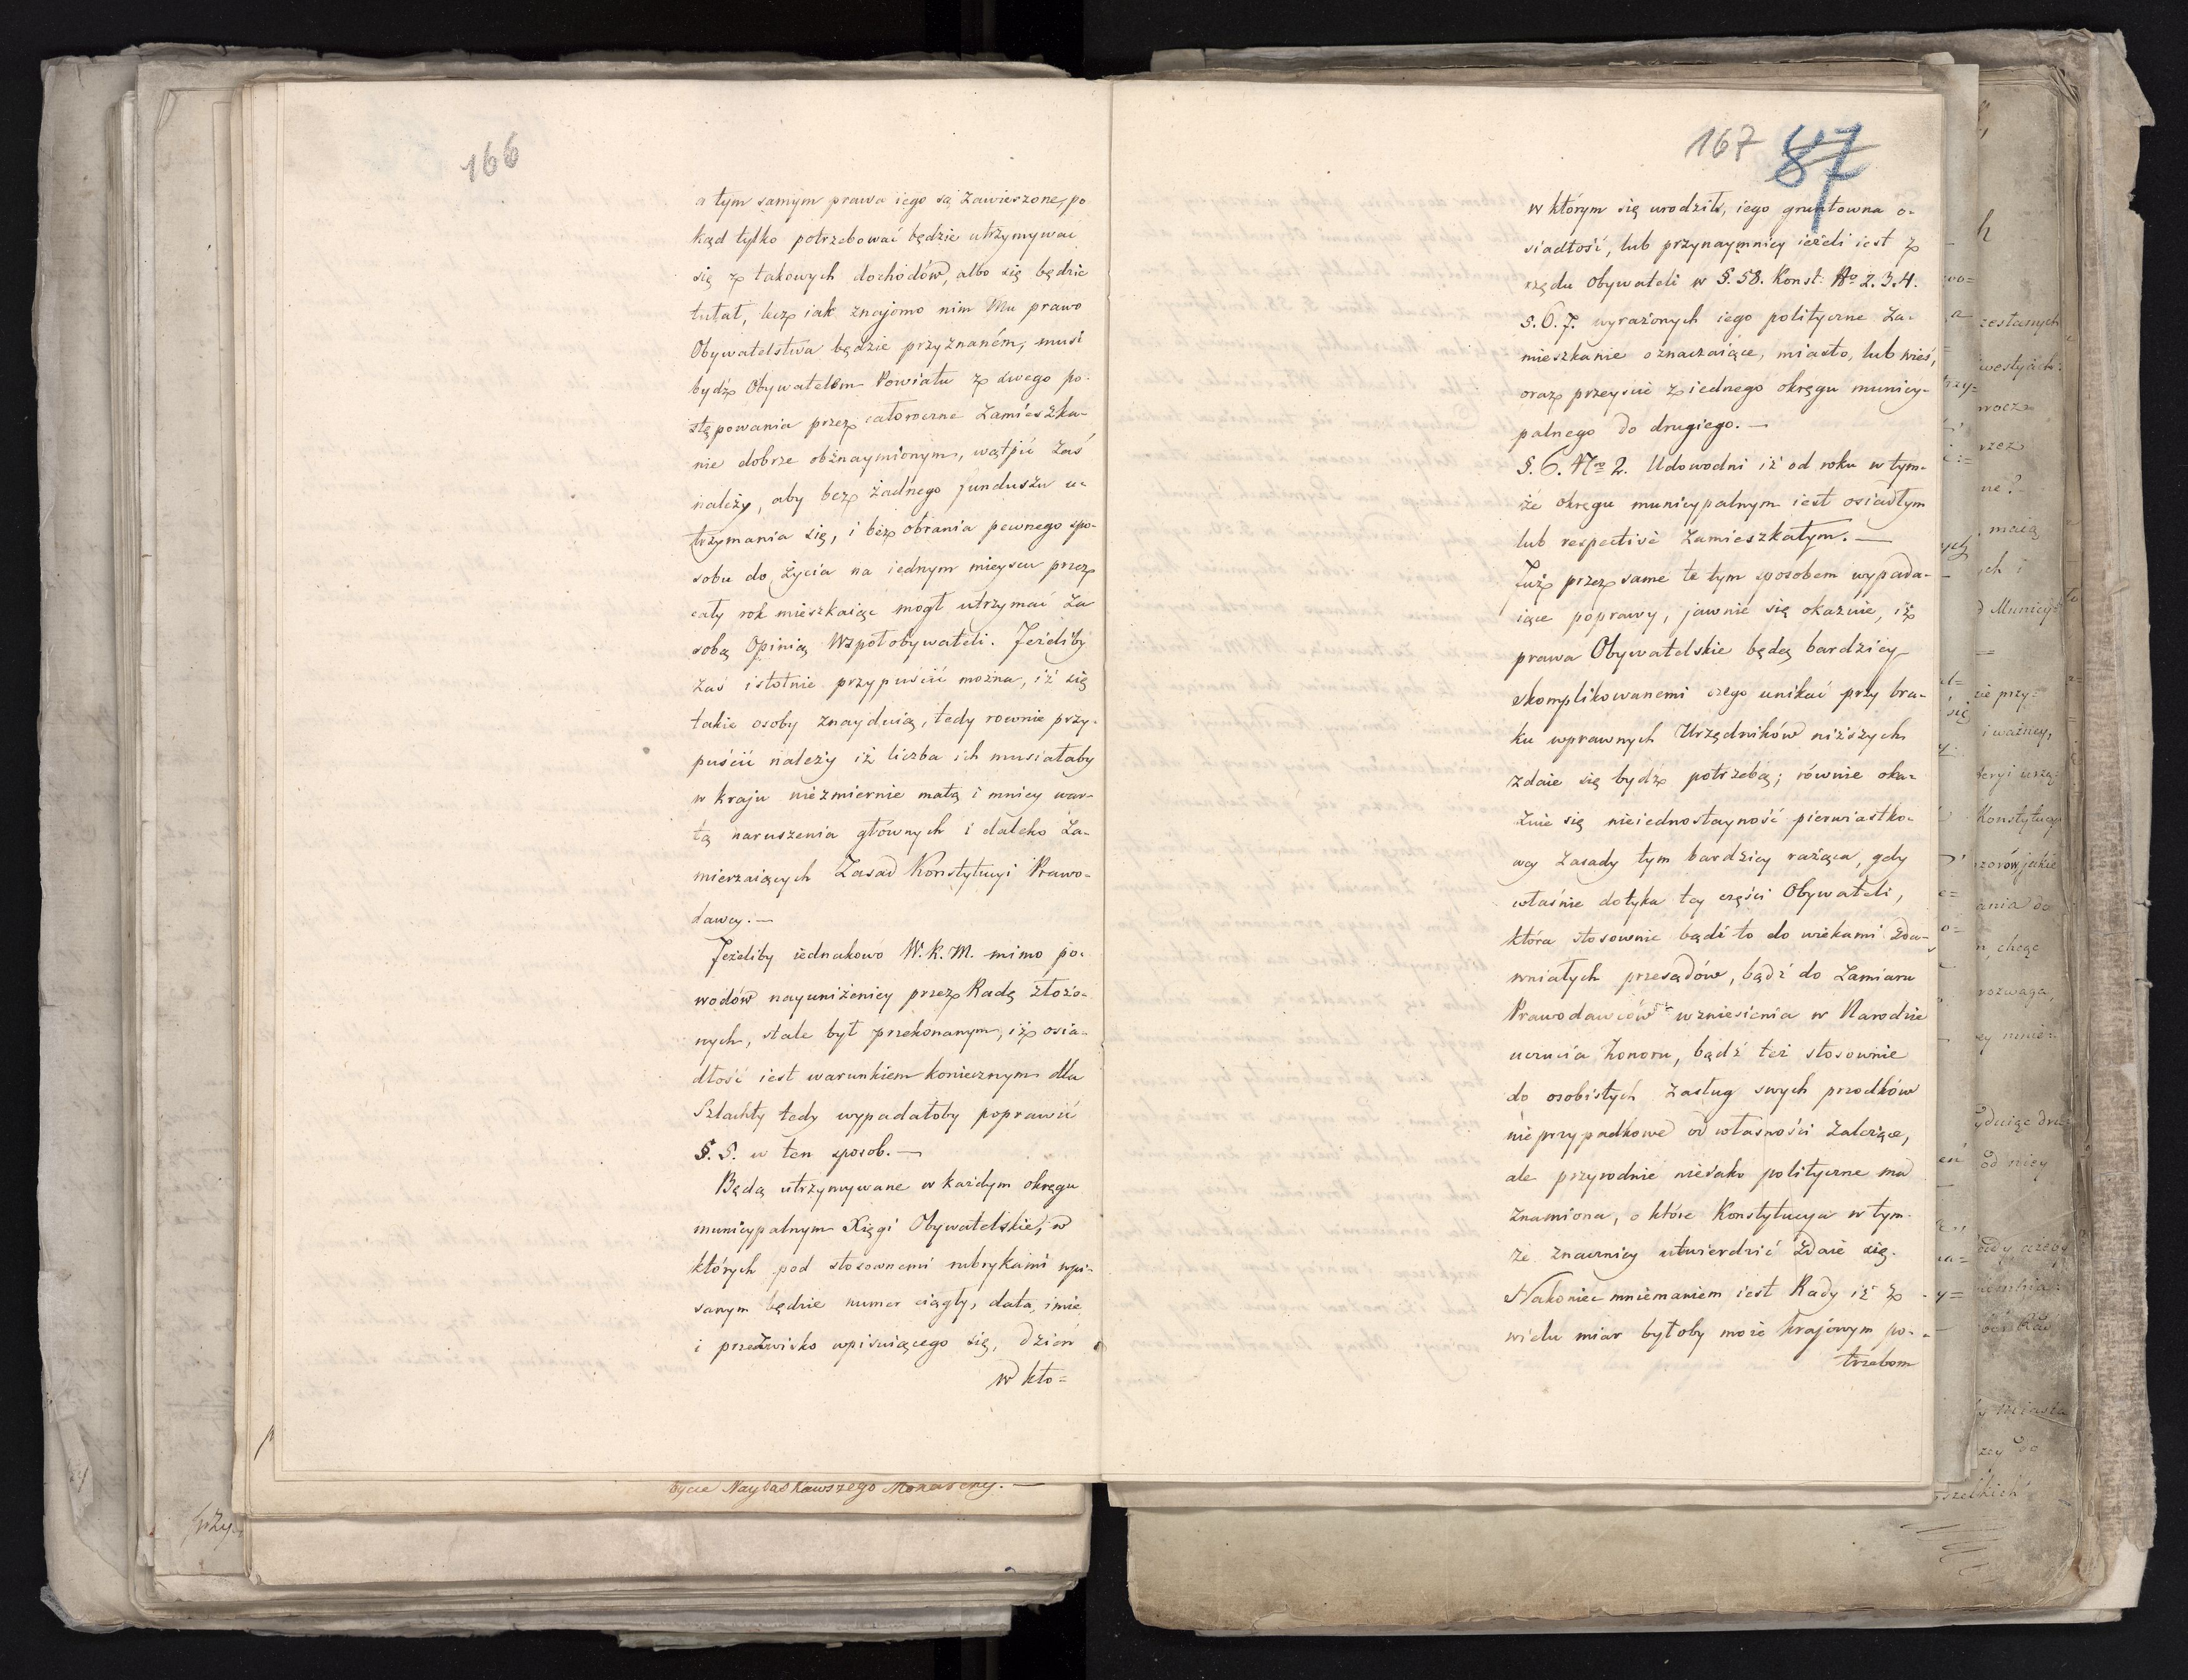 166
a tym samym prawa iego są zawieszone, po
kąd tylko potrzebować będzie utrzymywać
się z takowych dochodów, albo się będzie
tułał, lecz iak znajomo nim Mu prawo
Obywatelstwa będzie przyznaném, musi
bydź Obywatelem Powiatu z swego po-
stępowania przez całoroczne zamieszka-
nie dobrze obznaymionym, wątpić zaś
należy, aby bez żadnego funduszu u-
trzymania się, i bez obrania pewnego spo-
sobu do życia na iednym mieyscu przez
cały rok mieszkaiąc mogł utrzymać za
sobą Opinią Wspołobywateli. Jeżeliby
zaś istotnie przypuścić można, iż się
takie osoby znayduią, tedy rownie przy-
puścić należy iż liczba ich musiałaby
w kraju niezmiernie małą i mniey war-
tą naruszenia głównych i daleko za-
mierzaiących Zasad Konstytucyi Prawo-
dawcy. —
Jeżeliby iednakowo W. K. M. mimo po-
wodów nayuniżeniey przez Radę złożo-
nych, stale był przekonanym, iż osia-
dłość iest warunkiem koniecznym dla
Szlachty tedy wypadałoby poprawić
§. 5. w ten sposob. —
Będą utrzymywane w każdym okręgu
municypalnym Xięgi Obywatelskie, w
których pod stosownemi rubrykami wpi-
sanym będzie numer ciągły, data, imie
i przezwisko wpisuiącego się, dzień
w któ=
bycie Nayłaskawszego Monarchy. —
167 87
w którym się urodził, iego gruntowna o-
siadłość, lub przynaymniey ieżeli iest z
rzędu Obywateli w §. 58. Konst: No 2. 3. 4.
5. 6. 7. wyrażonych iego polityczne za-
mieszkanie oznaczaiące, miasto, lub wieś,
oraz przeyście z iednego okręgu municy-
palnego do drugiego. —
§. 6. No 2. Udowodni iż od roku w tym-
że okręgu municypalnym iest osiadłym
lub respective zamieszkałym. —
Już przez same te tym sposobem wypada-
iące poprawy, jawnie się okazuie, iż
prawa Obywatelskie będą bardziey
skomplikowanemi czego unikać przy bra-
ku wprawnych Urzędników niższych
zdaie się bydź potrzebą; równie oka-
zuie się nieiednostayność pierwiastko-
wey zasady tym bardziey rażąca, gdy
właśnie dotyka tey części Obywateli,
która stosownie bądź to do wiekami zda-
wniałych przesądów, bądź do zamiaru
Prawodawców wzniesienia w Narodzie
uczucia honoru, bądź też stosownie
do osobistych zasług swych przodków
nie przypadkowe od własności zależące,
ale przyrodnie nieiako polityczne ma
znamiona, o które Konstytucya w tym-
że znaczniey utwierdzić zdaie się.
Nakoniec mniemaniem iest Rady iż z
wielu miar byłoby może krajowym po-
trzebom